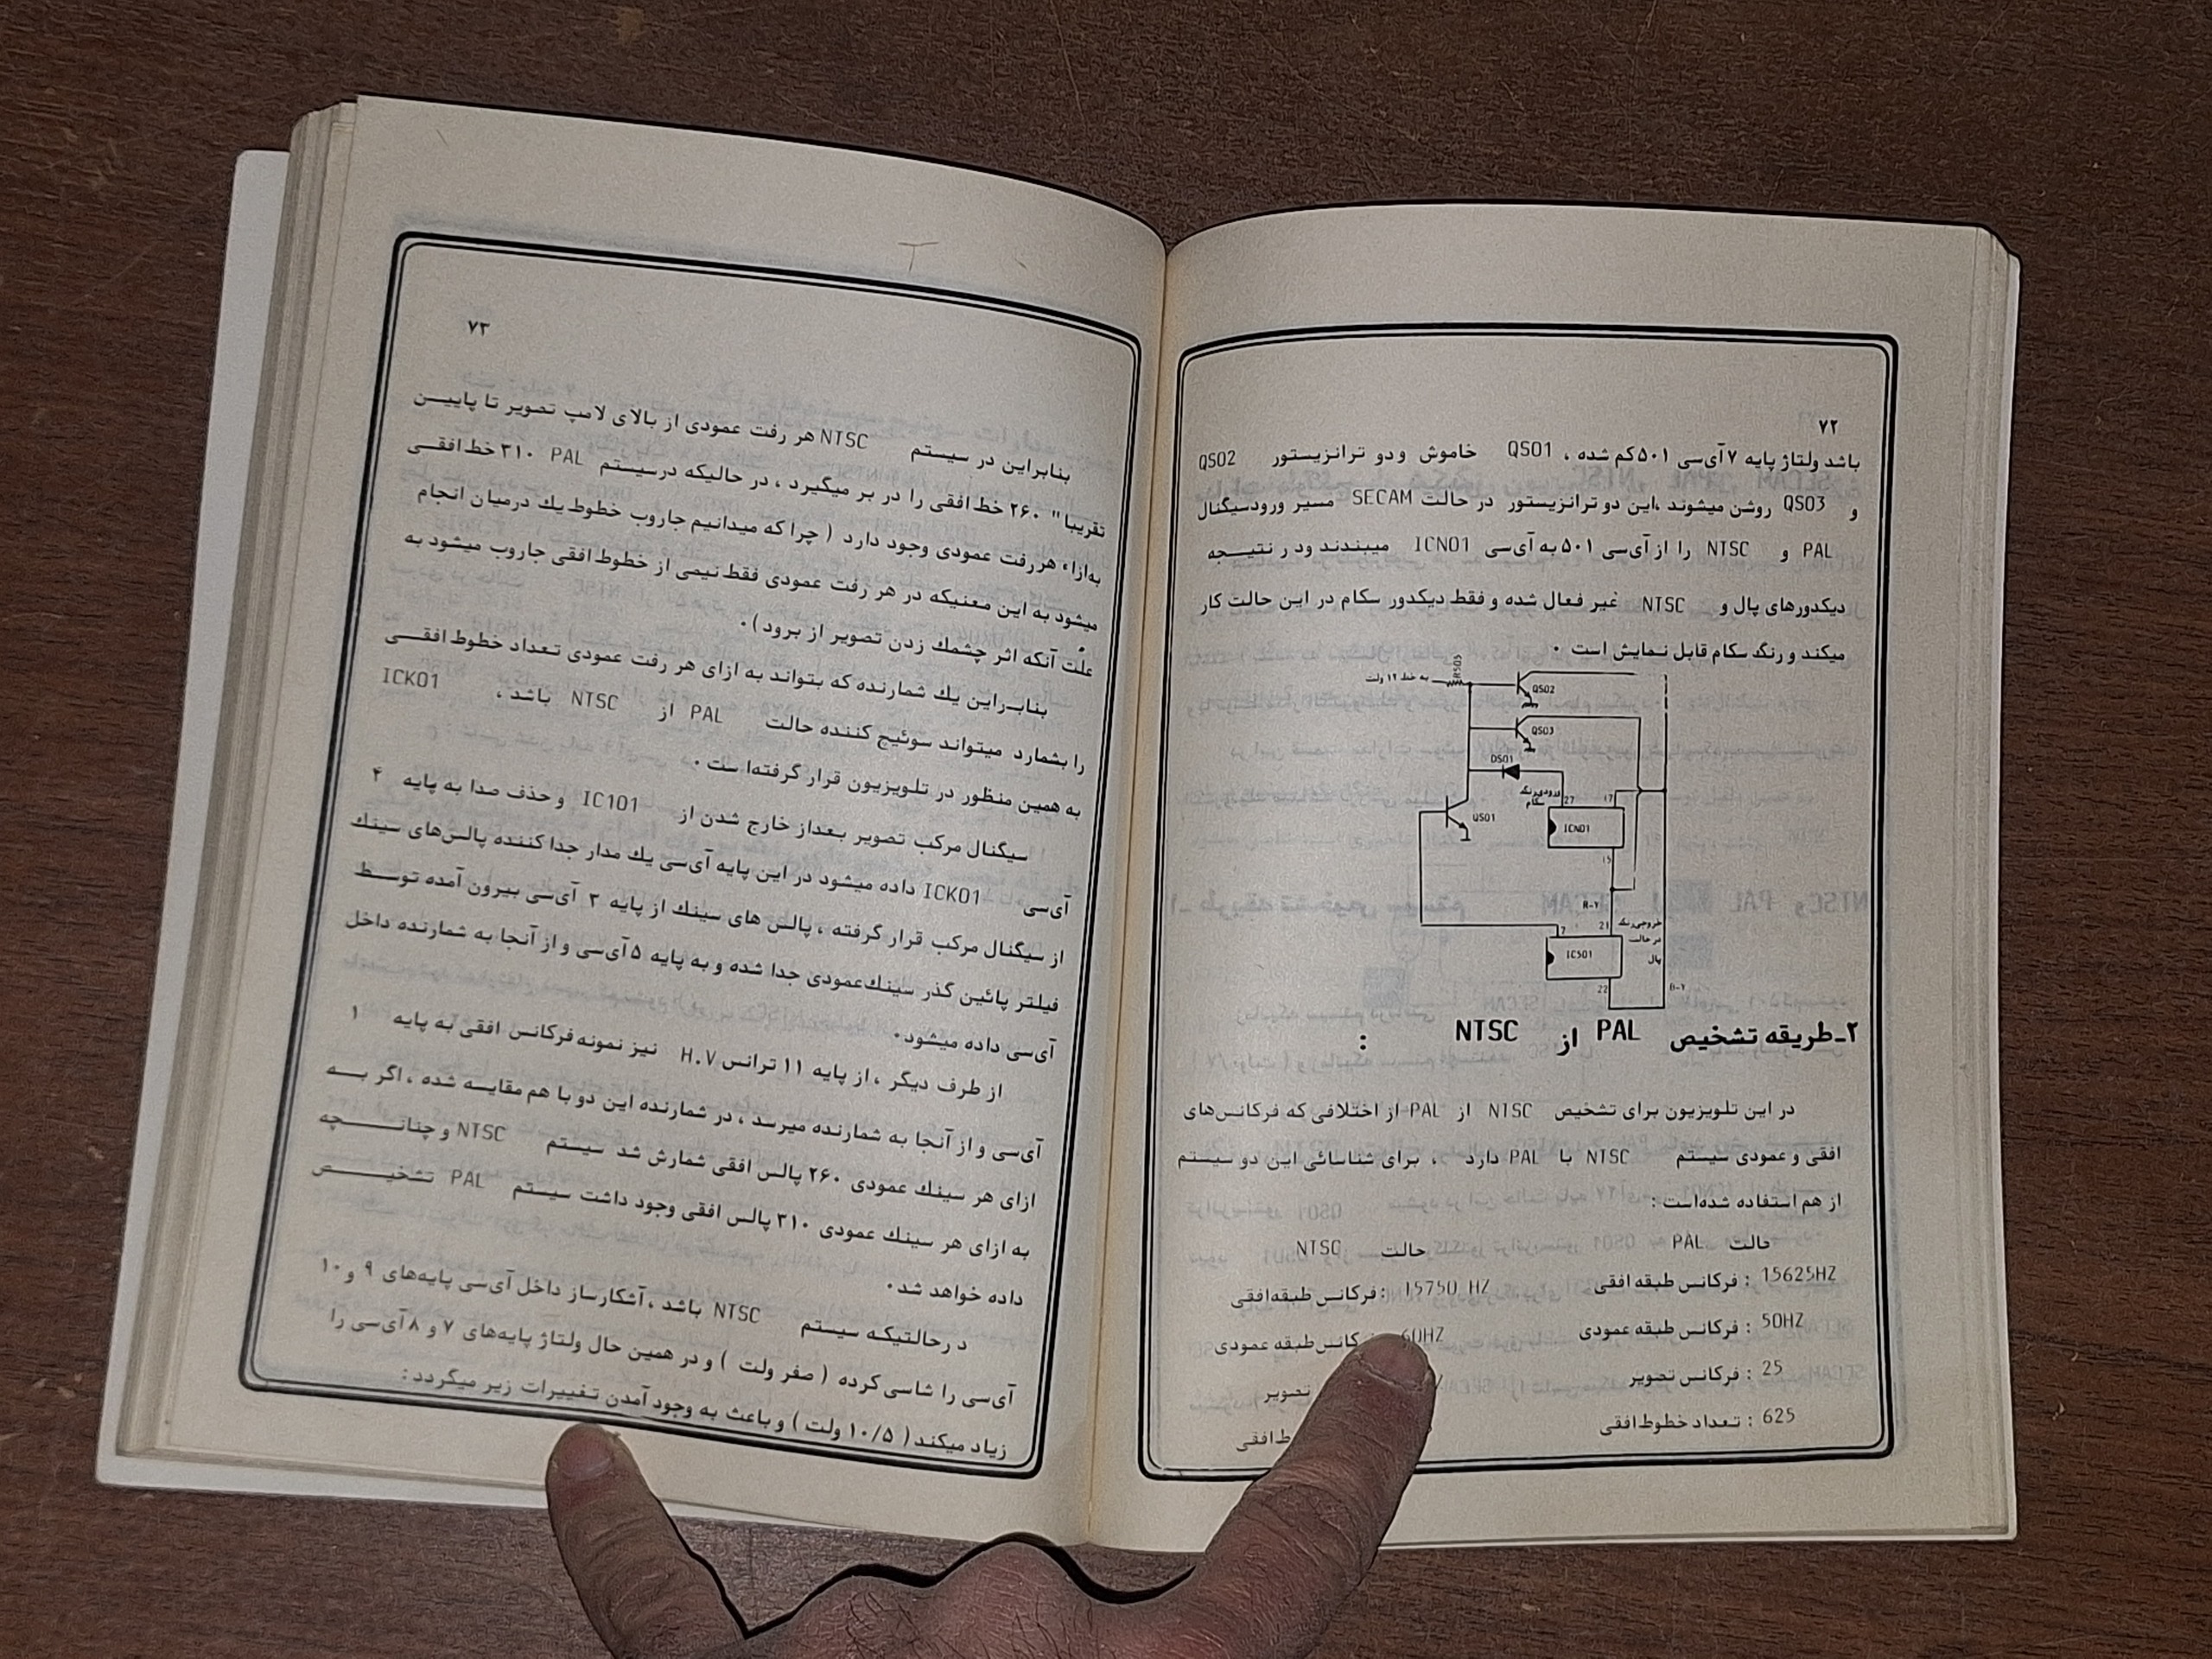 ۷۲
باشد ولتاژ پایه ۷ آی‌سی ۵۰۱ کم شده ، QS01 خاموش و دو ترانزیستور QS02
و QS03 روشن میشوند ،این دو ترانزیستور در حالت SECAM مسیر ورودسیگنال
PAL و NTSC را از آی‌سی ۵۰۱ به آی‌سی ICN01 میبندند ود ر نتیـــجه
دیکدورهای پال و NTSC غیر فعال شده و فقط دیکدور سکام در این حالت کار
میکند و رنگ سکام قابل نـمایش است .
به خط ۱۲ ولت
RS05
QS02
QS03
DS01
ورودی‌رنگ
سکام
27
17
QS01
ICN01
15
R-Y
خروجی‌رنگ
در حالت
پال
7
21
IC501
22
B-Y
۲ـ‌طریقه تشخیص PAL از NTSC :
در این تلویزیون برای تشخیص NTSC از PAL از اختلافی که فرکانس‌های
افقی و عمودی سیستم NTSC با PAL دارد ، برای شناسائی این دو سیستم
از هم استفاده شده‌است :
حالت PAL حالت NTSC
15625HZ : فرکانس طبقه افقی 15750 HZ : فرکانس طبقه‌افقی
50HZ : فرکانس طبقه عمودی 60HZ طبقه عمودی
25 : فرکانس تصویر تصویر
625 : تـعداد خطوط‌افقی
۷۳
بنابراین در سیستم NTSC هر رفت عمودی از بالای لامپ تصویر تا پاییــن
تقریبا" ۲۶۰ خط افقی را در بر میگیرد ، در حالیکه درسیستم PAL ۳۱۰ خط‌افقــی
به‌ازاء هررفت عمودی وجود دارد ( چرا که میدانیم جاروب خطوط یك درمیان انجام
میشود به این معنیکه در هر رفت عمودی فقط نیمی از خطوط افقی جاروب میشود به
علت آنکه اثر چشمك زدن تصویر از برود ) .
بنابـراین یك شمارنده که بتواند به ازای هر رفت عمودی تـعداد خطوط افقــی
را بشمارد میتواند سوئیچ کننده حالت PAL از NTSC باشد ، ICK01
به همین منظور در تلـویزیون قرار گرفته‌ا ست .
سیگنال مرکب تصویر بـعداز خارج شدن از IC101 و حذف صدا به پایه ۴
آی‌سی ICK01 داده میشود در این پایه آی‌سی یك مدار جدا کننده پالـس‌های سینك
از سیگنال مرکب قرار گرفته ، پالس های سینك از پایه ۳ آی‌سی بیرون آمده توســط
فیلتر پائین گذر سینك‌عمودی جدا شده و به پایه ۵ آی‌سی و از آنجا به شمارنده داخل
آی‌سی داده میشود .
از طرف دیگر ، از پایه ۱۱ ترانس H.V نیز نمونه‌فرکانس افقی به پایه ۱
آی‌سی و از آنجا به شمارنده میرسد ، در شمارنده این دو با هم مقایسه شده ، اگر بــه
ازای هر سینك عمودی ۲۶۰ پالس افقی شمارش شد سیستم NTSC و چنانـــچه
به ازای هر سینك عمودی ۳۱۰ پالس افقی وجود داشت سیستم PAL تشخیـــص
داده خواهد شد .
د رحالتیکـه سیـستم NTSC باشد ، آشکارساز داخل آی‌سی پایه‌های ۹ و ۱۰
آی‌سی را شاسی کرده ( صفر ولت ) و در همین حال ولتاژ پایه‌های ۷ و ۸ آی‌سی را
زیاد میکند ( ۱۰/۵ ولت ) و باعث به وجود آمدن تـغییرات زیر میگردد :